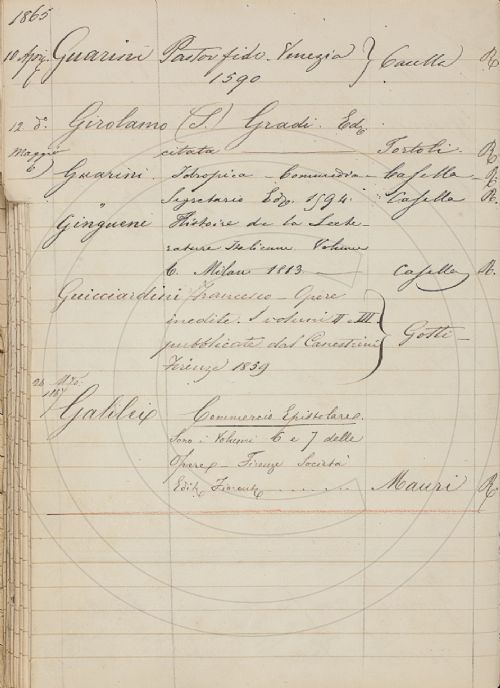 1865
10 Apr. Guarini Pastor fido. Venezia } Casella R
1590
12 do. Girolamo (S.) Gradi. Edz.
citata Tortoli. R
Maggio
6 Guarini. Idropica - Commedia - Casella - R.
" Segretario Edz. 1594. Casella R.
Ginguené Histoire de la Litte-
rature Italienne Volume
6. Milan 1813 Casella R.
Guicciardini Francesco - Opere
inedite. I volumi II e III
pubblicate dal Canestrini } Gotti -
Firenze 1859
26
1867 Galilei Commercio Epistolare.
Sono i Volumi 6 e 7 delle
Opere - Firenze Società
Edit. Fiorent. Mauri R